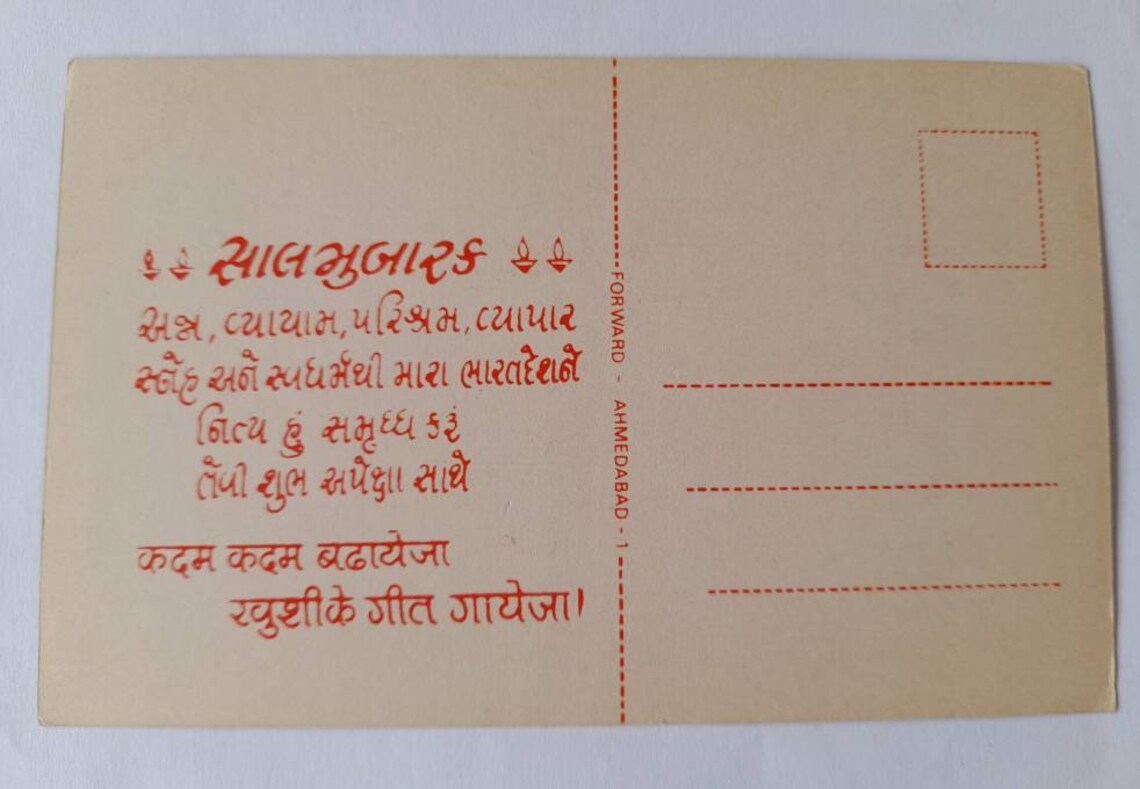 સાલમુબારક
અન્ન, વ્યાયામ, પરિશ્રમ, વ્યાપાર
સ્નેહ અને સ્વધર્મથી મારા ભારતદેશને
નિત્ય હું સમૃધ્ધ કરું
તેવી શુભ અપેક્ષા સાથે
कदम कदम बढायेजा
खुशीके गीत गायेजा।
FORWARD - AHMEDABAD - 1